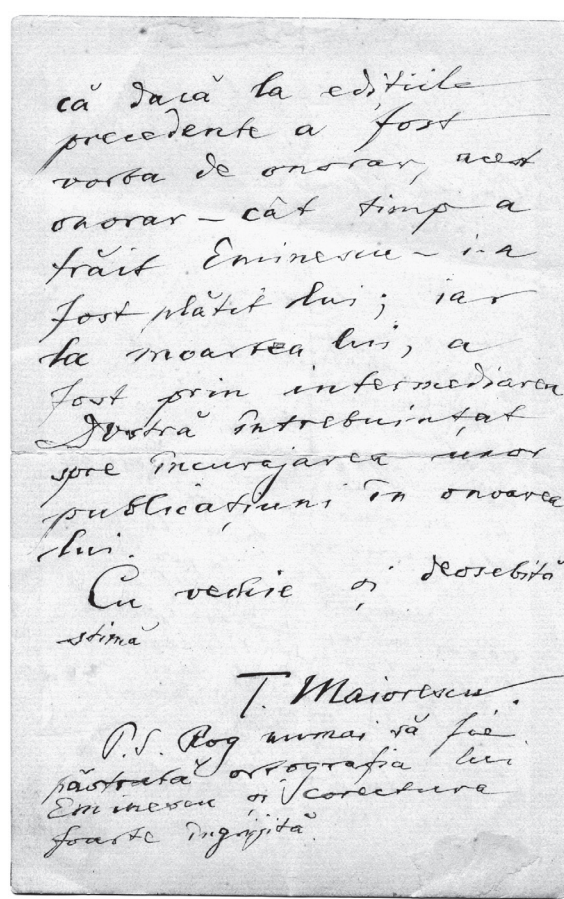 că dacă la edițiile
precedente a fost
vorba de onorar, acest
onorar – cât timp a
trăit Eminescu – i-a
fost plătit lui; iar
la moartea lui, a
fost prin intermediarea
Dvstră întrebuințat
spre încurajarea unor
publicațiuni în onoarea
lui.
Cu veche și deosebită
stimă
T. Maiorescu.
P.S. Rog numai să fie
păstrată ortografia lui
Eminescu și corectura
foarte îngrijită.